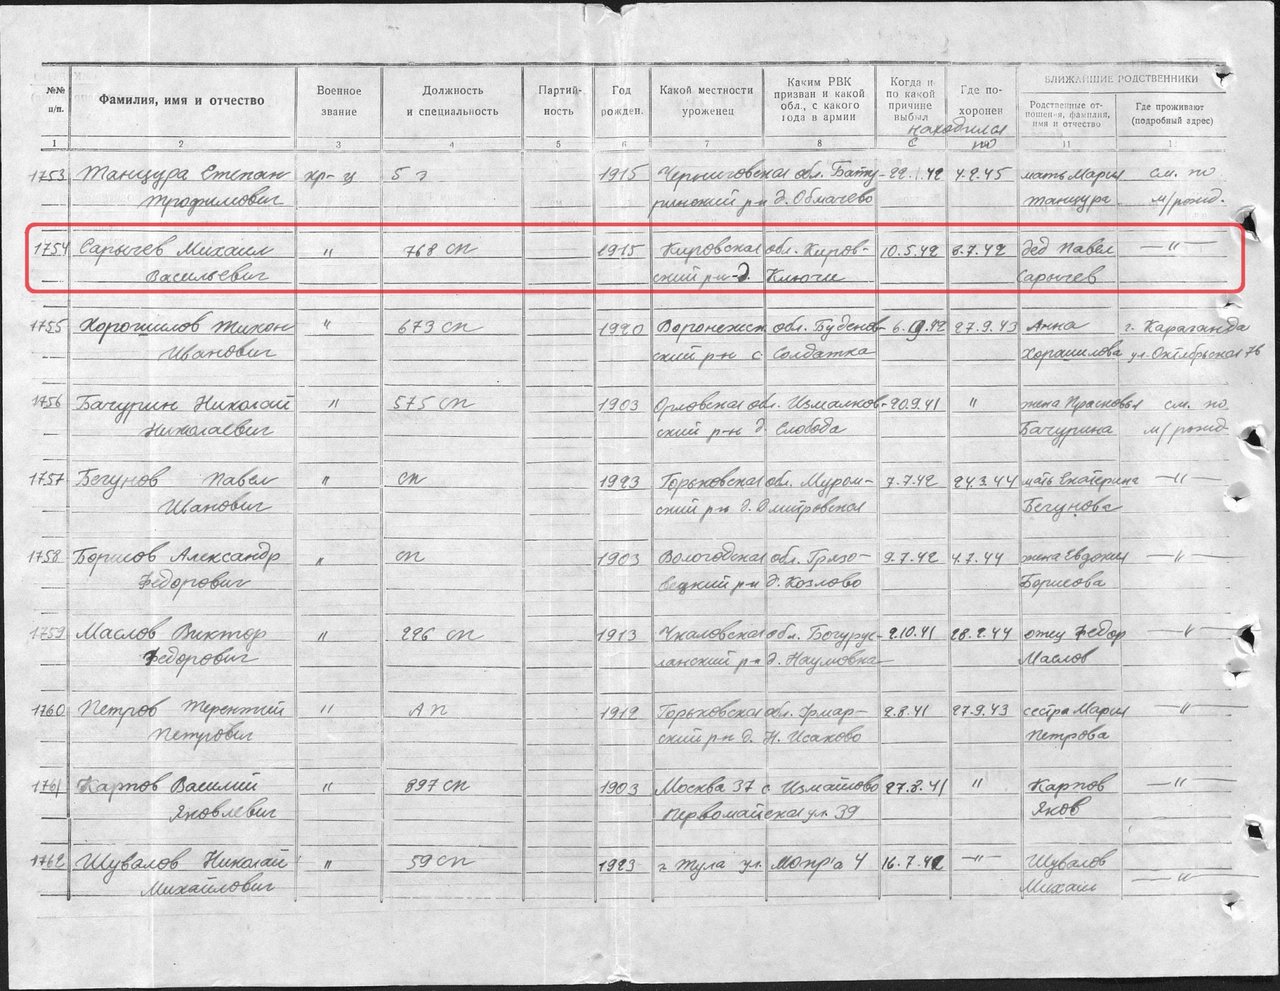 №№ п/п.
Фамилия, имя и отчество
Военное звание
Должность и специальность
Партий- ность
Год рожден.
Какой местности уроженец
Каким РВК призван и какой обл., с какого года в армии
Когда и по какой причине выбыл
Где по- хоронен
БЛИЖАЙШИЕ РОДСТВЕННИКИ
Родственные от- ношен-я, фамилия, имя и отчество
Где проживают (подробный адрес)
находился
с по
1 2 3 4 5 6 7 8 11
1753 Танцура Степан кр-ц 5 г 1915 Черниговская обл. Бату- 22.1.42 4.2.45 мать Мария см. по
Трофимович ринский р-н д. Обмачево Танцура м/рожд.
1754 Сарычев Михаил " 768 сп 1915 Кировская обл. Киров- 10.5.42 8.7.42 дед Павел —"—
Васильевич ский р-н д. Ключи Сарычев
1755 Хорошилов Тихон " 673 сп 1920 Воронежск обл. Буденов- 27.9.43 Анна г. Караганда
Иванович ский р-н с Солдатка Хорашилова ул. Октябрьская 76
1756 Бачурин Николай " 575 сп 1903 Орловская обл. Измалков- 20.9.41 " жена Прасковья см. по
Николаевич ский р-н д. Слобода Бачурина м/рожд.
1757 Бегунов Павел " сп 1923 Горьковская обл. Муром- 7.7.42 24.3.44 мать Екатерина —"—
Иванович ский р-н д. Дмитровская Бегунова
1758 Борисов Александр " сп 1903 Вологодская обл. Грязо- 9.7.42 4.7.44 жена Евдокия —"—
Федорович вецкий р-н д. Козлово Борисова
1759 Маслов Виктор " 226 сп 1913 Чкаловская обл. Богурус- 2.10.41 28.2.44 отец Федор —"—
Федорович ланский р-н д. Наумовка Маслов
1760 Петров Терентий " АП 1912 Горьковская обл. Ярмар- 2.8.41 27.9.43 сестра Мария —"—
Петрович ский р-н д. Н. Исаково Петрова
1761 Карпов Василий " 897 сп 1903 Москва 37 с Измайлово 27.8.41 " Карпов —"—
Яковлевич Первомайская ул 39 Яков
1762 Шувалов Николай " 59 сп 1923 г Тула ул. Мопр'а 4 16.7.42 —"— Шувалов
Михайлович Михаил —"—